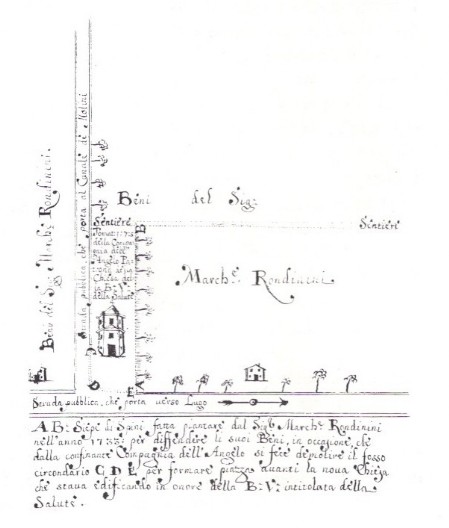 Beni del Sig:
Sentiere
Sentiere
B
March:e Rondinini
Beni del Sig: March:e Rondinini
Strada pubblica, che porta al Canale de Molini
della
Angelo
Chiesa del
la B: V:
della Salute
D
C
E
A
Strada pubblica, che porta verso Lugo
A B: Siepe di Spini fatta piantare dal Sig: March:e Rondinini
nell'anno 1733: per diffendere li suoi Beni, in occasione, che
dalla confinante Compagnia dell'Angelo si fece demolire il fosso
circondario C D E per formare piazza avanti la nova Chiesa
che stava edificando in onore della B: V: intitolata della
Salute.